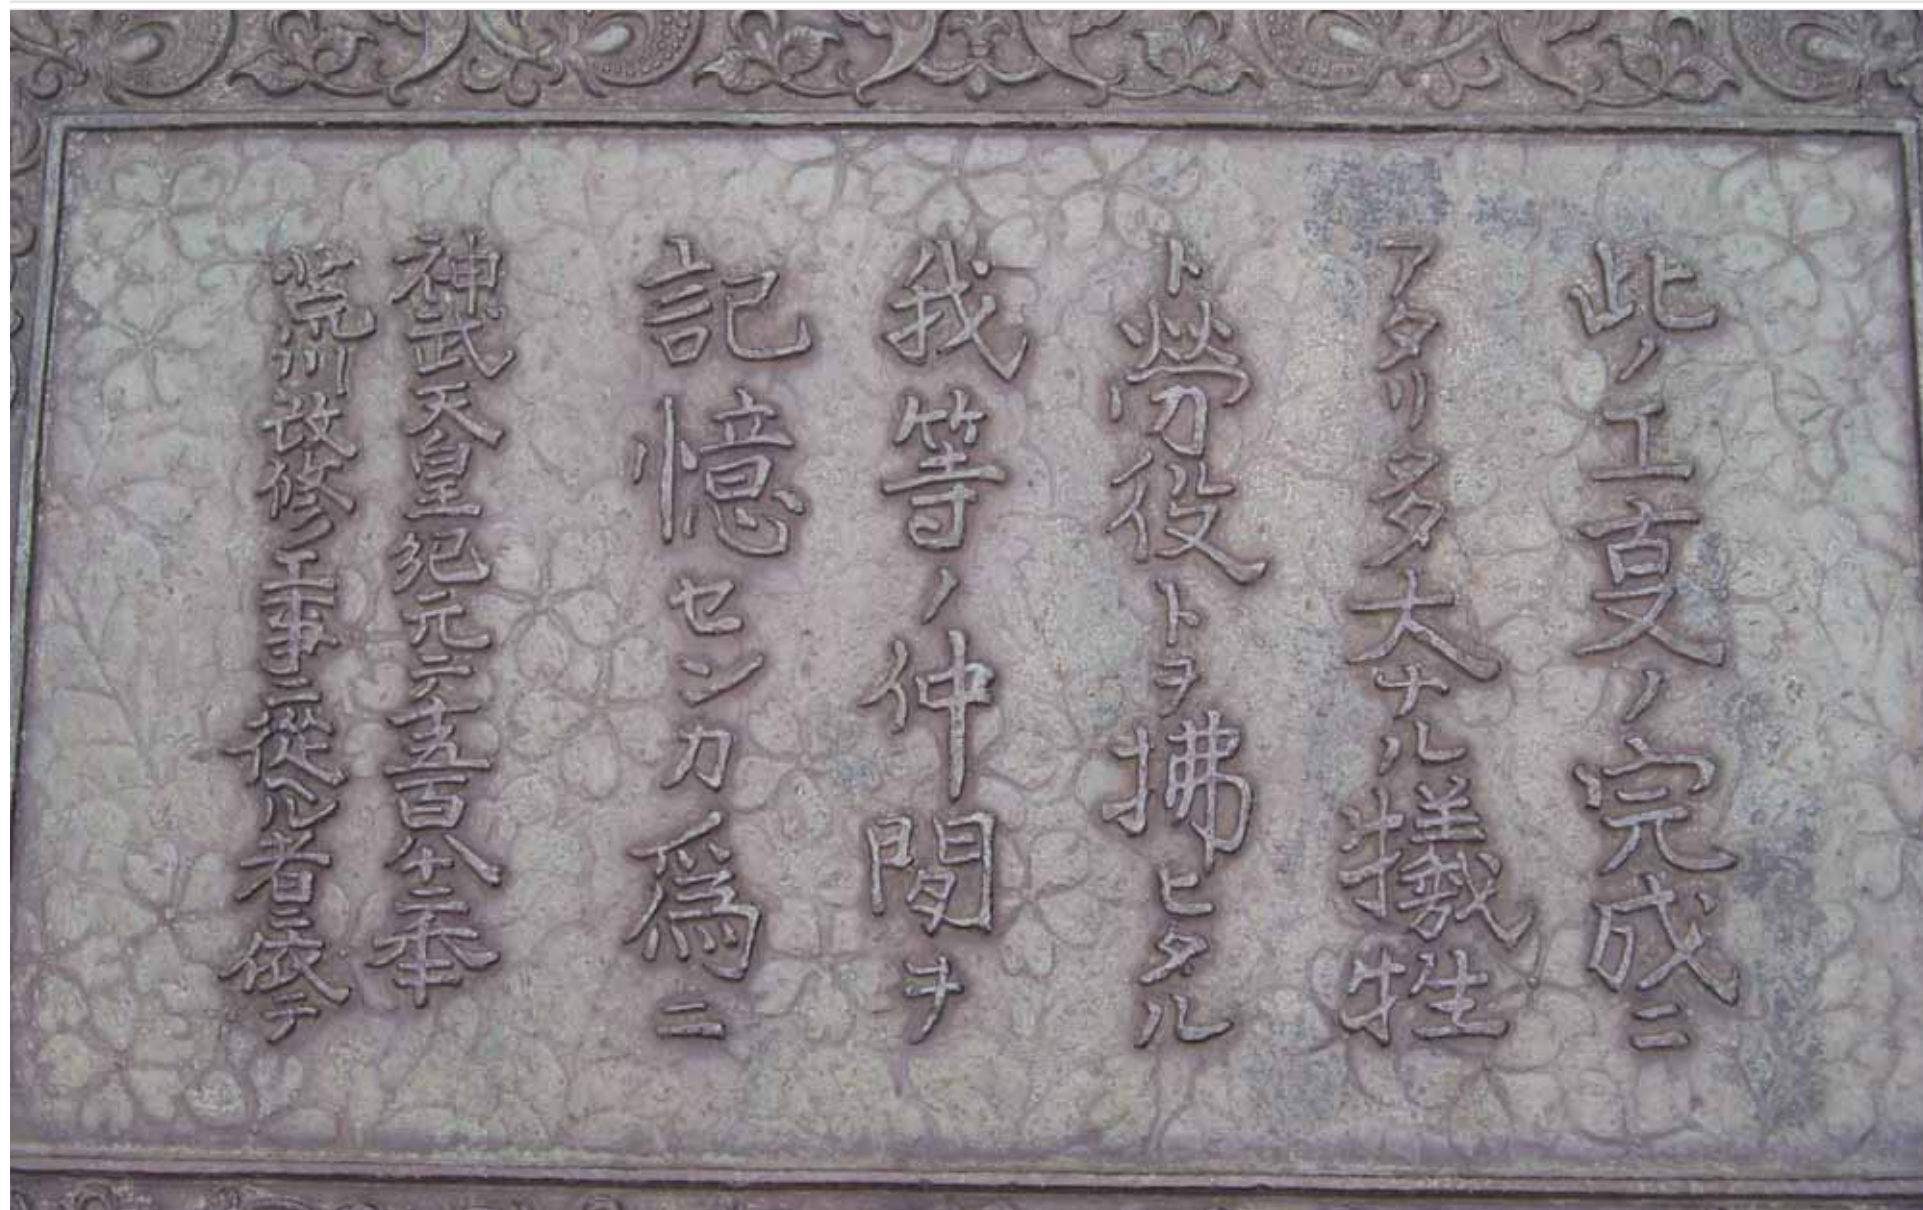 此ノ工叓ノ完成ニ
アタリ多大ナル犠牲
ト勞役トヲ拂ヒタル
我等ノ仲間ヲ
記憶センカ爲ニ
神武天皇紀元二千五百八十二年
荒川改修工事ニ從ヘル者ニ依テ